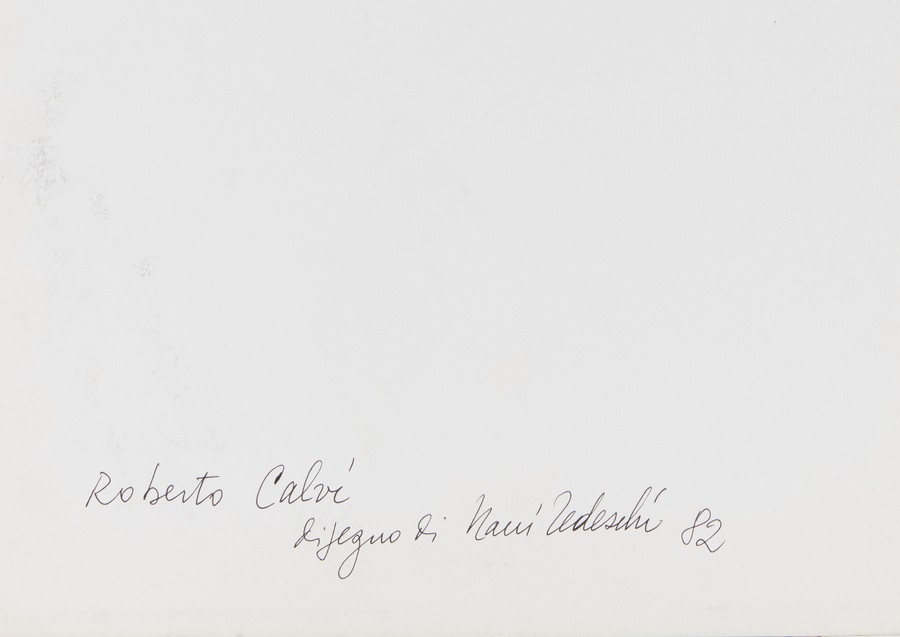 Roberto Calvi
disegno di Nani Tedeschi 82